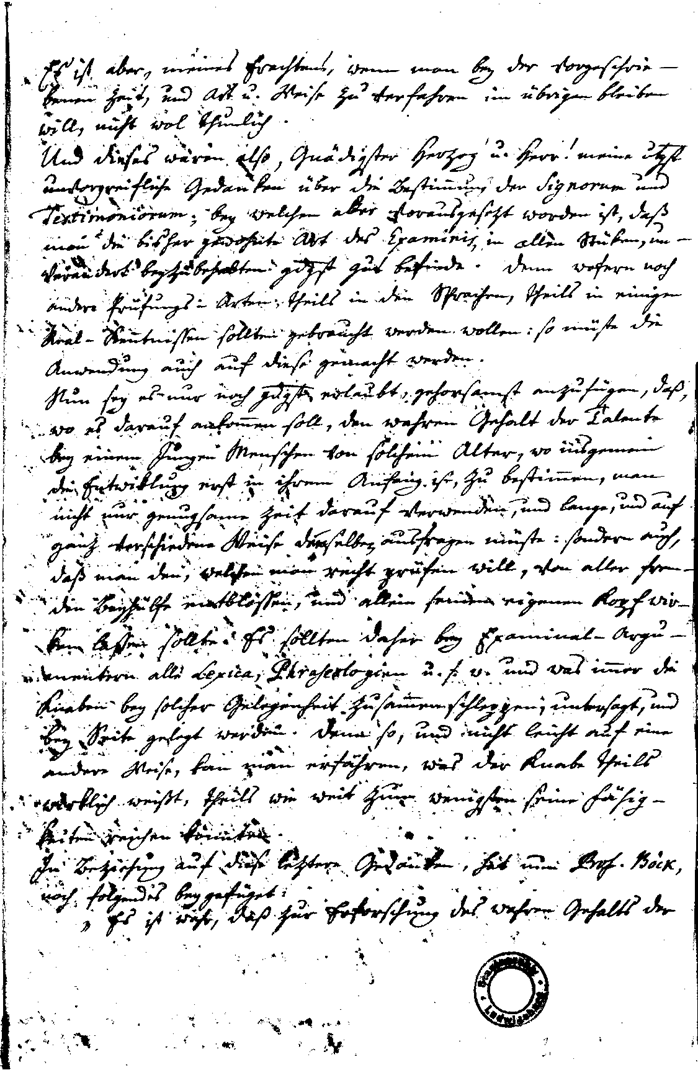 Es ist aber, meines Erachtens, wenn man bey der vorgeschrie-
benen Zeit, und Art u. Weise zu verfahren im übrigen bleiben
will, nicht wol thunlich.
Und dieses wären also, Gnädigster Herzog u. Herr! meine
unvorgreifliche Gedanken über die Bestimmung der Signorum und
Testimoniorum; bey welchen aber vorausgesetzt worden ist, daß
man die bisher gewohnte Art des Examinis, in allen Stüken, un-
verändert beyzubehalten gdgst gut befinde. Denn wofern noch
andere Prüfungs-Arten, theils in den Sprachen, theils in einigen
Real-Kenntnissen sollten gebraucht werden wollen: so müste die
Anwendung auch auf diese gemacht werden.
Nun sey es nur noch gdgst erlaubt, gehorsamst anzufügen, daß,
wo es darauf ankommen soll, den wahren Gehalt der Talente
bey einem jungen Menschen von solchem Alter, wo insgemein
die Entwiklung erst in ihrem Anfang ist, zu bestimmen, man
nicht nur genugsame Zeit darauf verwenden, und lange, und auf
ganz verschiedene Weise denselben ausfragen müste: sondern auch,
daß man den, welchen man recht prüfen will, von aller frem-
den Beyhülfe entblössen, und allein seinen eigenen Kopf wir-
ken lassen sollte. Es sollten daher bey Examinal-Argu-
mentern alle Lexica, Phraseologien u. s. w. und was immer die
Knaben bey solcher Gelegenheit zusammenschleppen, untersagt, und
bey Seite gelegt werden. Denn so, und nicht leicht auf eine
andere Weise, kan man erfahren, was der Knabe theils
würklich weißt, theils wie weit zum wenigsten seine Fähig-
keiten reichen könnten.
In Beziehung auf diese leztere Gedanken, hat mir Prof. Böck,
noch folgendes beygefüget:
„Es ist wahr, daß zur Erforschung des wahren Gehalts der
Staatsarchiv
Ludwigsburg